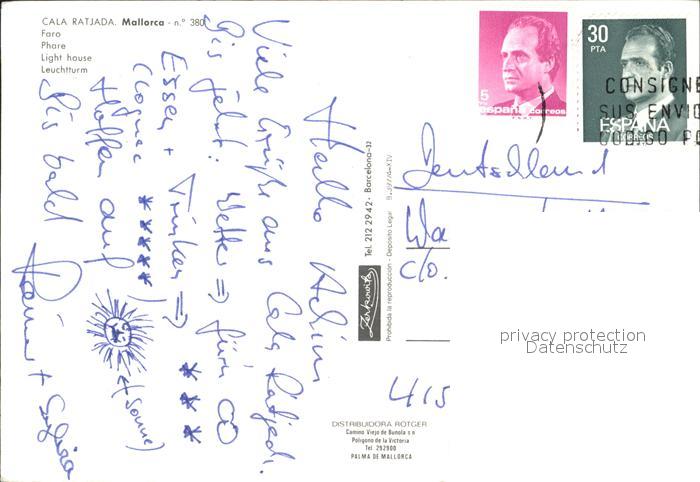 CALA RATJADA. Mallorca - n.º 380
Faro
Phare
Light house
Leuchtturm
5
españa correos
30
PTA
ESPAÑA
CORREOS
CONSIGNE
SUS ENVIO
CODIGO PO
Hallo Achim
Viele Grüße aus Cala Ratjada.
Bis jetzt: Wetter ⇒ für 00
Essen + Trinken ⇒ * * *
(Cognac * * * * *)
Hoffen auf (Sonne)
Bis bald
Rainer + Sylvia
Deutschland
c/o.
415
Tel. 212 29 42 - Barcelona-32
Prohibida la reproducción - Depósito Legal
privacy protection
Datenschutz
DISTRIBUIDORA ROTGER
Camino Viejo de Buñola s n
Polígono de la Victoria
Tel. 292900
PALMA DE MALLORCA